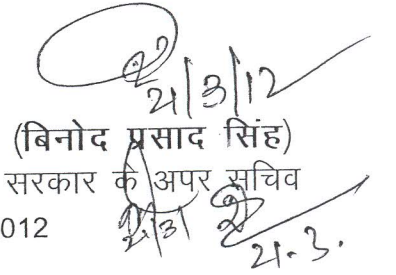 21/3/12
(बिनोद प्रसाद सिंह)
सरकार के अपर सचिव
012
21.3.